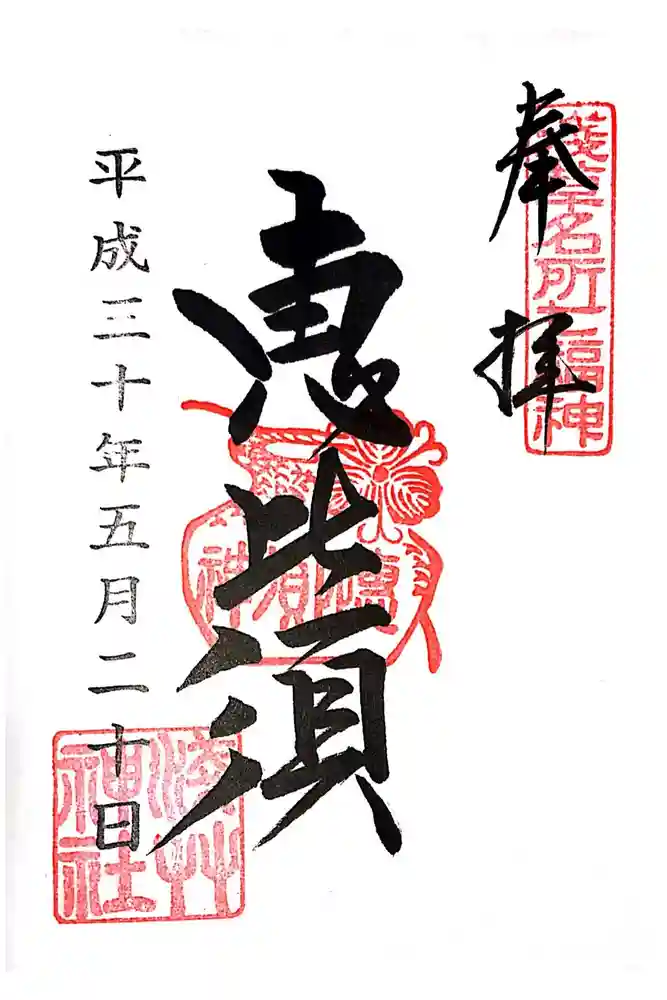 奉拝
浅草名所七福神
恵比須
平成三十年五月二十日
浅草
神社